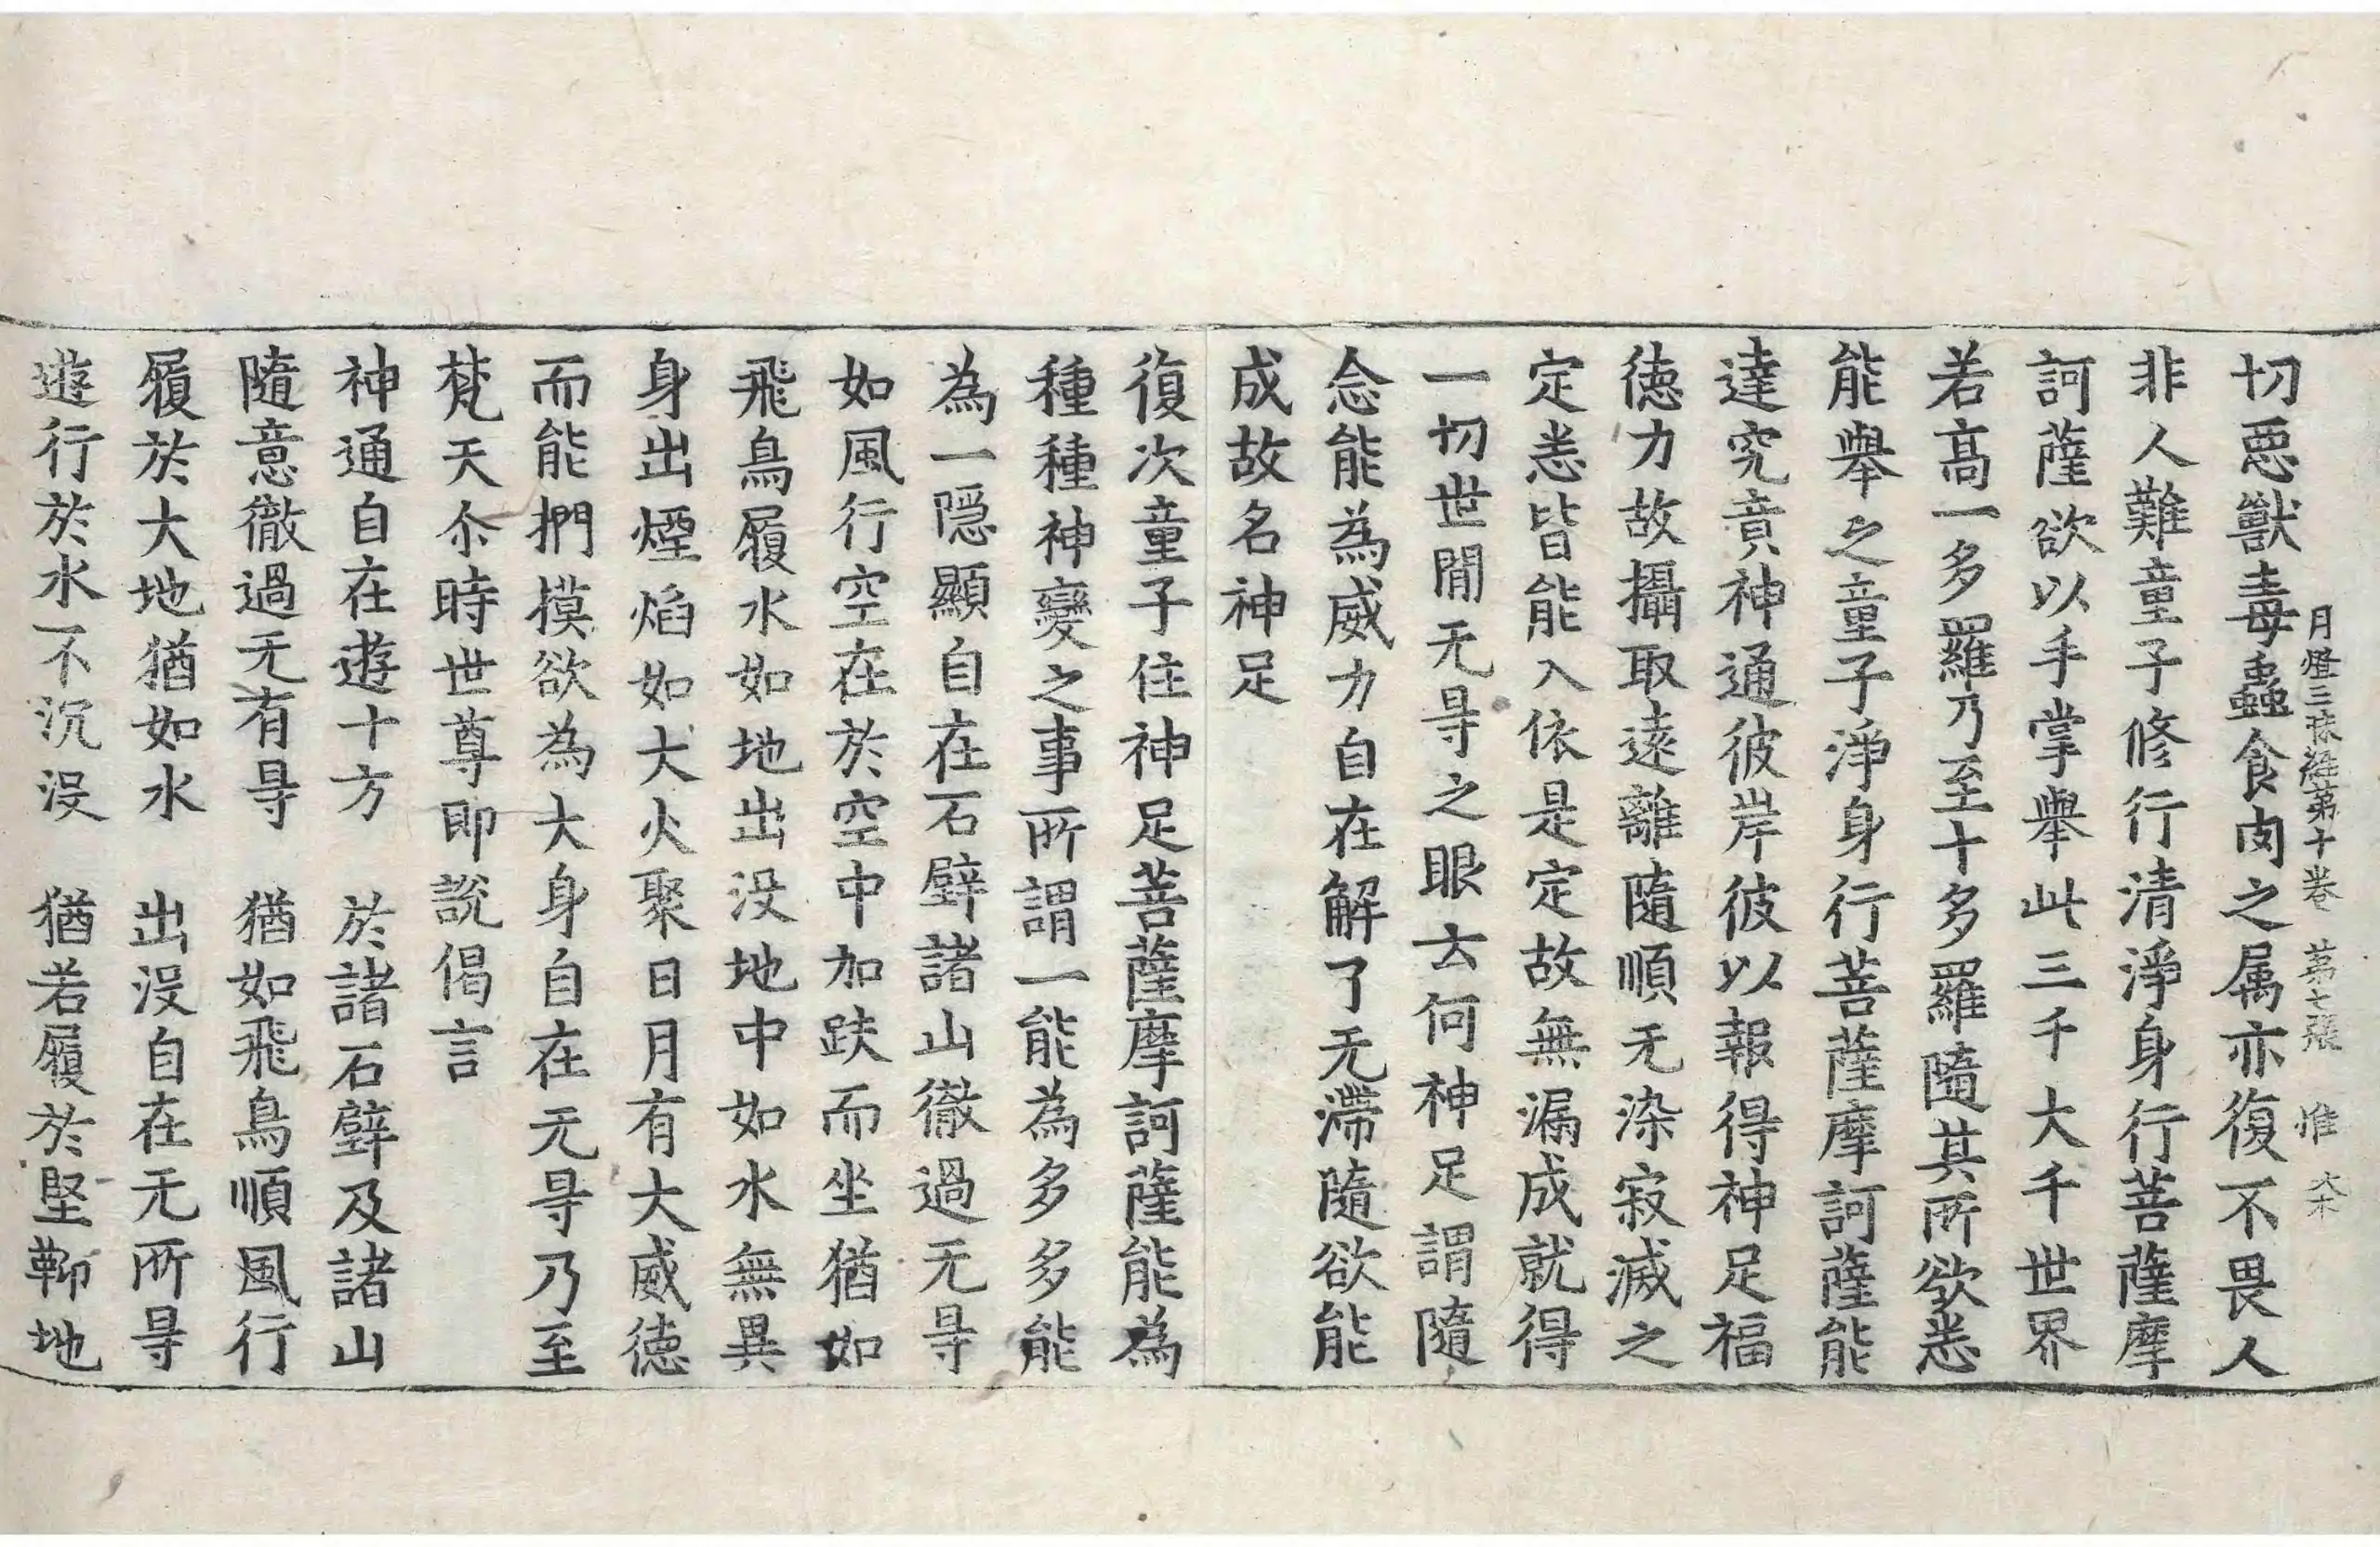 月燈三昧經第十卷　第七張　惟　大木
切惡獸毒蟲食肉之属亦復不畏人
非人難童子修行清淨身行菩薩摩
訶薩欲以手掌舉此三千大千世界
若高一多羅乃至十多羅隨其所欲悉
能舉之童子淨身行菩薩摩訶薩能
達究竟神通彼岸彼以報得神足福
徳力故攝取遠離隨順无染寂滅之
定悉皆能入依是定故無漏成就得
一切世閒无㝵之眼云何神足謂隨
念能為威力自在解了无滯隨欲能
成故名神足
復次童子住神足菩薩摩訶薩能為
種種神變之事所謂一能為多多能
為一隠顯自在石壁諸山徹過无㝵
如風行空在於空中加趺而坐猶如
飛鳥履水如地出没地中如水無異
身出煙焰如大火聚日月有大威徳
而能捫摸欲為大身自在无㝵乃至
梵天尒時世尊即說偈言
神通自在遊十方　於諸石壁及諸山
隨意徹過无有㝵　猶如飛鳥順風行
履於大地猶如水　出没自在无所㝵
遊行於水不沉没　猶若履於堅鞕地